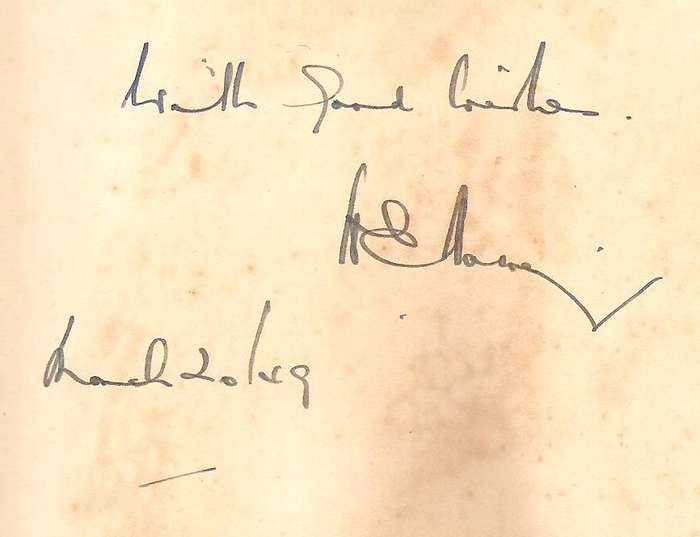 With Good Wishes.
H E
March 20/49